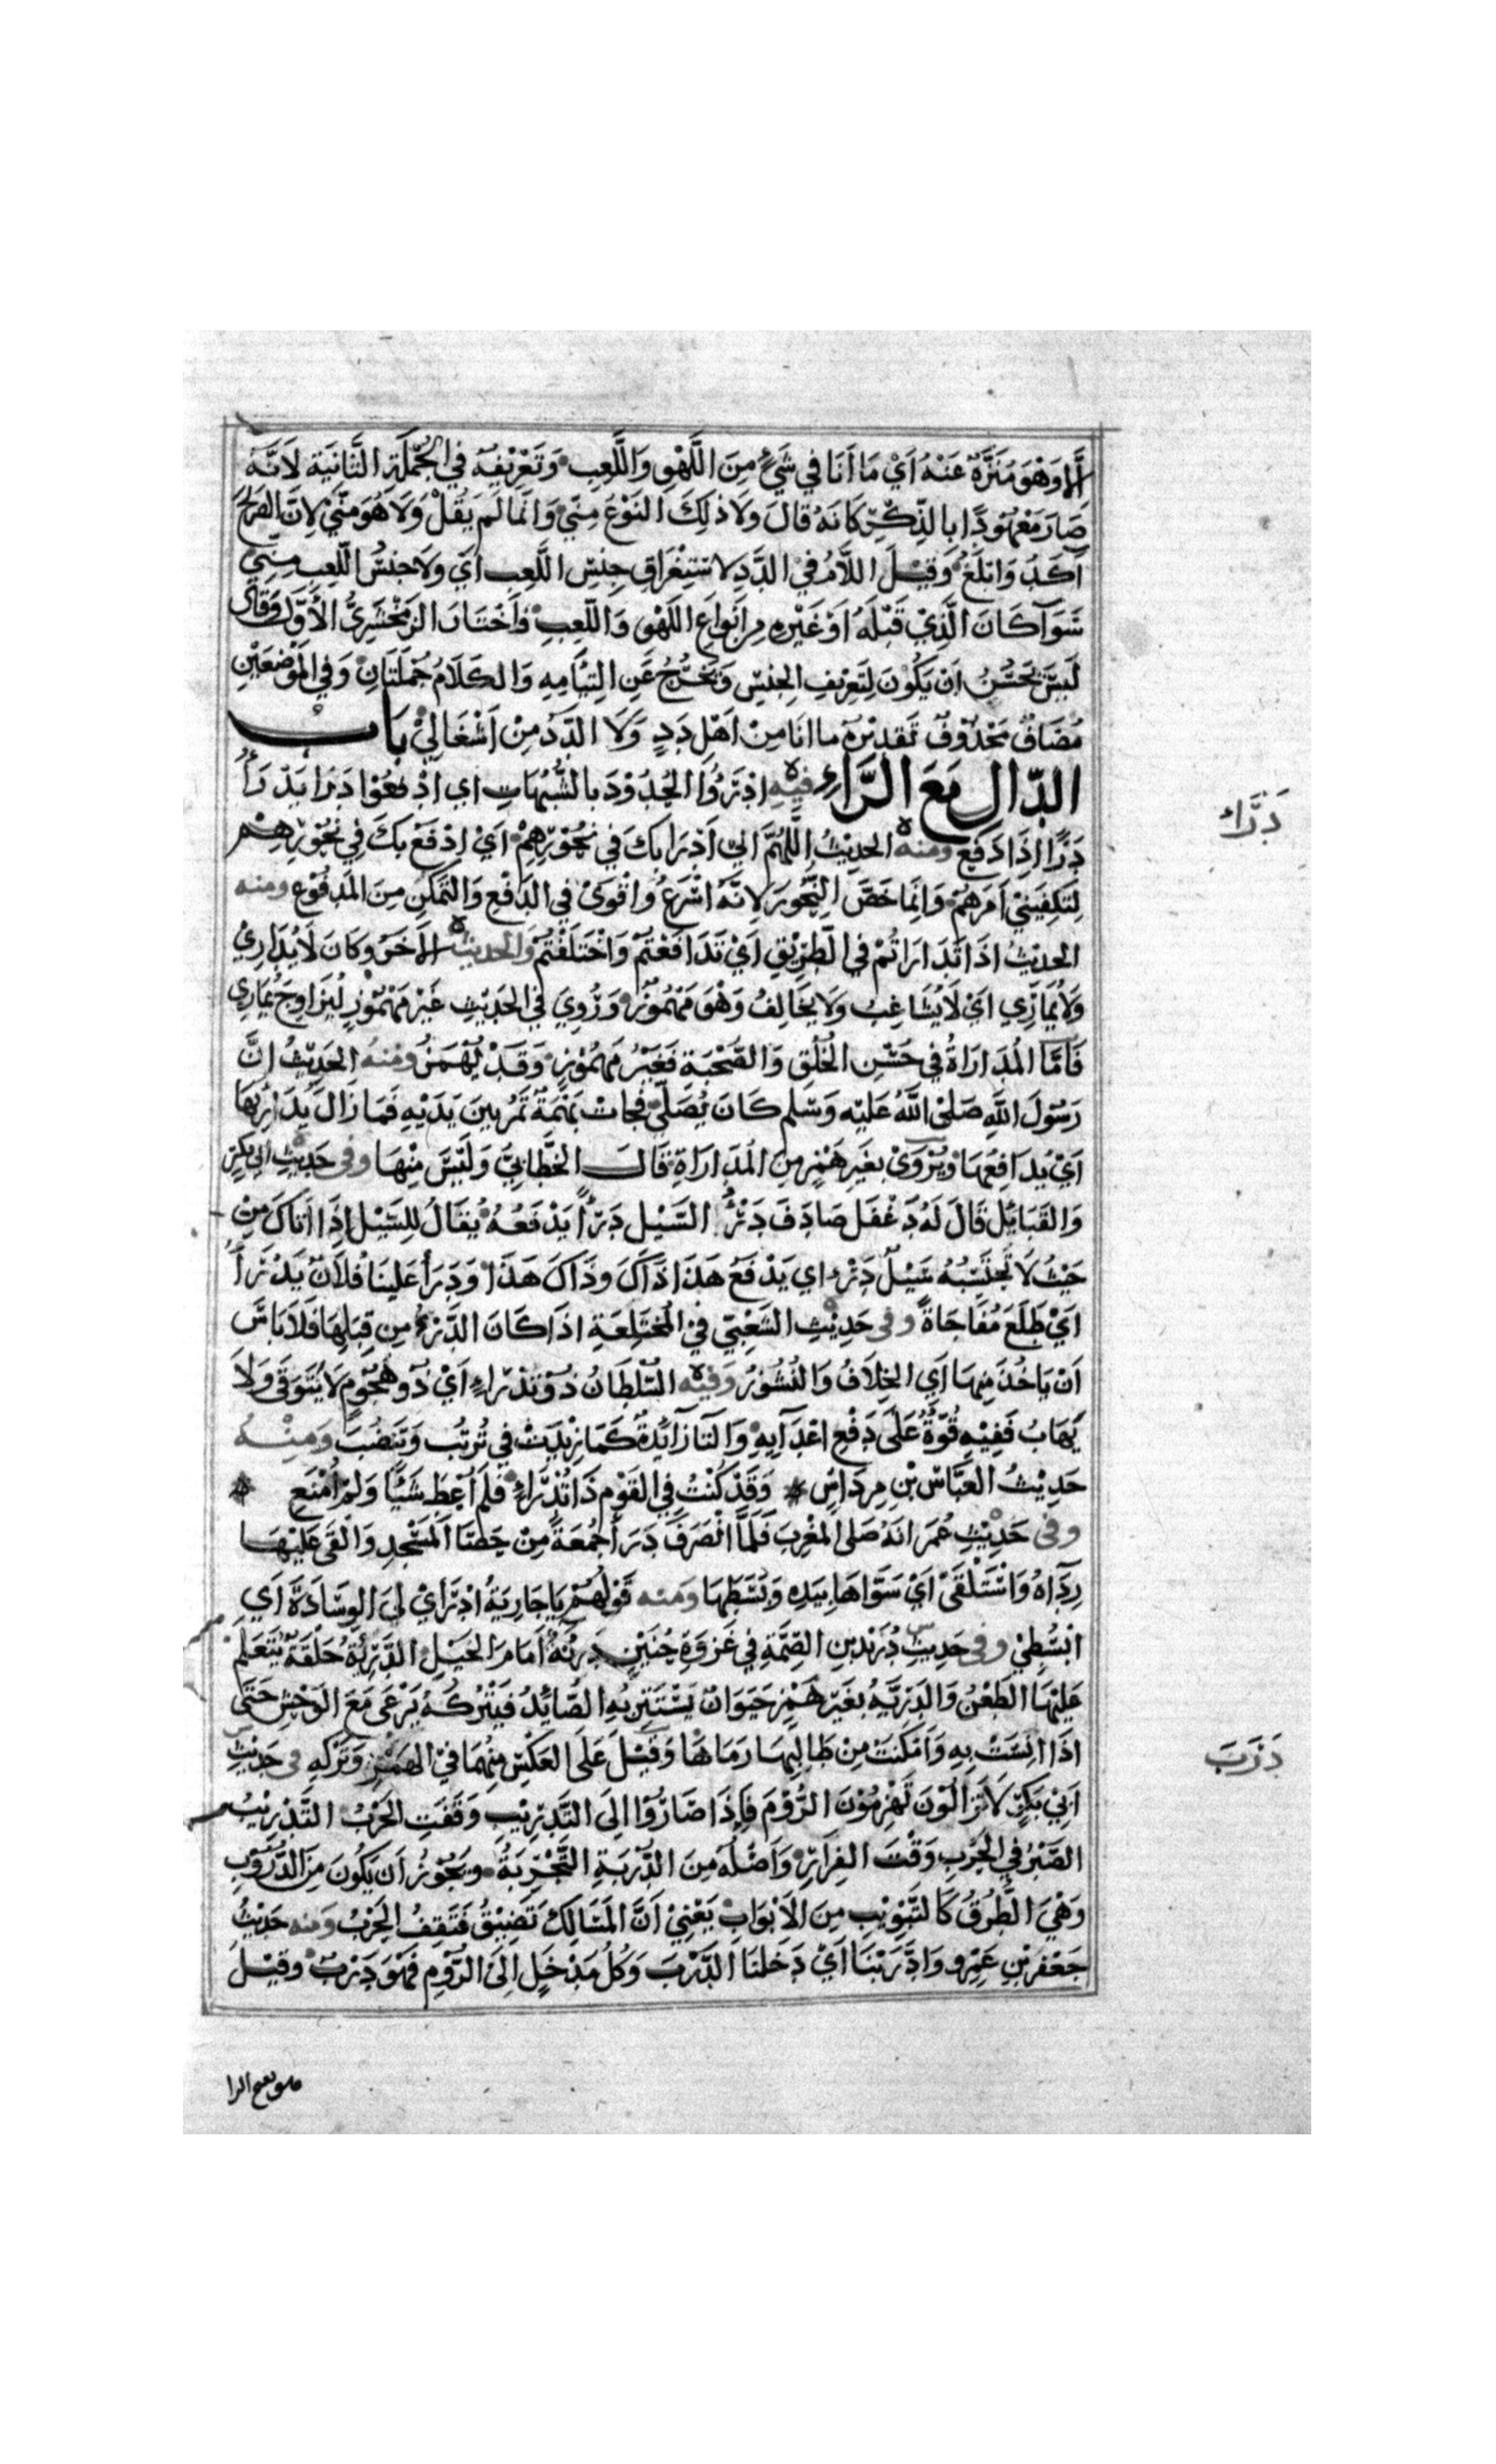 إلا وهو منزه عنه أي ما أنا في شيء من اللهو واللعب وتعريفه في الجملة الثانية لأنه
صار معهودا بالذكر كأنه قال ولا ذلك النوع مني وإنما لم يقل ولا هو مني لأن الصريح
آكد وأبلغ وقيل اللام في الدد لاستغراق جنس اللعب أي ولا جنس اللعب مني
سواء كان الذي قبله أو غيره من أنواع اللهو واللعب فاختار الزمخشري الأول وقال
ليس يحسن أن يكون لتعريف الجنس ويخرج عن التيامه والكلام جملتان وفي الموضعين
مضاف محذوف تقديره ما أنا من أهل دد ولا الدد من أشغالي باب
الدال مع الراء فيه ادرؤا الحدود بالشبهات أي ادفعوا درا يدرأ
درأ إذا دفع ومنه الحديث اللهم إني أدرأ بك في نحورهم أي ادفع بك في نحورهم
لتكفيني أمرهم وإنما خص النحور لأنه أسرع وأقوى في الدفع والتمكن من المدفوع ومنه
الحديث إذا تدارأتم في الطريق أي تدافعتم واختلفتم والحديث الآخر وكان لا يداري
ولا يماري أي لا يشاغب ولا يخالف وهو مهموز وروي في الحديث غير مهموز ليزاوج يماري
فأما المداراة في حسن الخلق والصحبة فغير مهموز وقد يهمز ومنه الحديث إن
رسول الله صلى الله عليه وسلم كان يصلي فجات بهمة تمر بين يديه فما زال يداريها
أي يدافعها ويروى بغير همز من المداراة قال الخطابي وليس منها وفي حديث أبي بكر
والقبايل قال له دغفل صادف درؤ السيل درأ يدفعه يقال للسيل إذا أتاك من
حيث لا تحتسبه سيل درء أي يدفع هذا ذاك وذاك هذا ودرأ علينا فلان يدرأ
أي طلع مفاجاة وفي حديث الشعبي في المختلعة إذا كان الدرء من قبلها فلا باس
أن ياخذ منها أي الخلاف والنشوز وفيه السلطان ذو تدراء أي ذو هجوم لا يتوقى ولا
يهاب ففيه قوة على دفع أعدآيه والتا زائدة كما زيدت في ترتب وتنضب ومنه
حديث العباس بن مرداس * وقد كنت في القوم ذا تدراء فلم أعط شيا ولم أمنع *
وفي حديث عمر انه صلى المغرب فلما انصرف درأ جمعة من حصا المسجد وألقى عليها
رداه واستلقى أي سواها بيده وبسطها ومنه قولهم يا جارية ادرأي لي الوسادة أي
ابسطي وفي حديث دريد بن الصمة في غزوة حنين درئة أمام الخيل الدريئة حلقة يتعلم
عليها الطعن والدرية بغير همز حيوان يستتر به الصائد فيتركه يرعى مع الوحش حتى
إذا انست به وأمكنت من طالبها رماها وقيل على العكس منهما في الهمز وتركه في حديث
أبي بكر لا تزالون تهزمون الروم فإذا صاروا إلى التدريب وقفت الحرب التدريب
الصبر في الحرب وقت الفرار وأصله من الدربة التجربة ويجوز أن يكون من الدروب
وهي الطرق كالتبويب من الأبواب يعني أن المسالك تضيق فتقف الحرب ومنه حديث
جعفر بن عمرو وادربنا أي دخلنا الدرب وكل مدخل إلى الروم فهو درب وقيل
دراء
درب
هو بفتح الرا